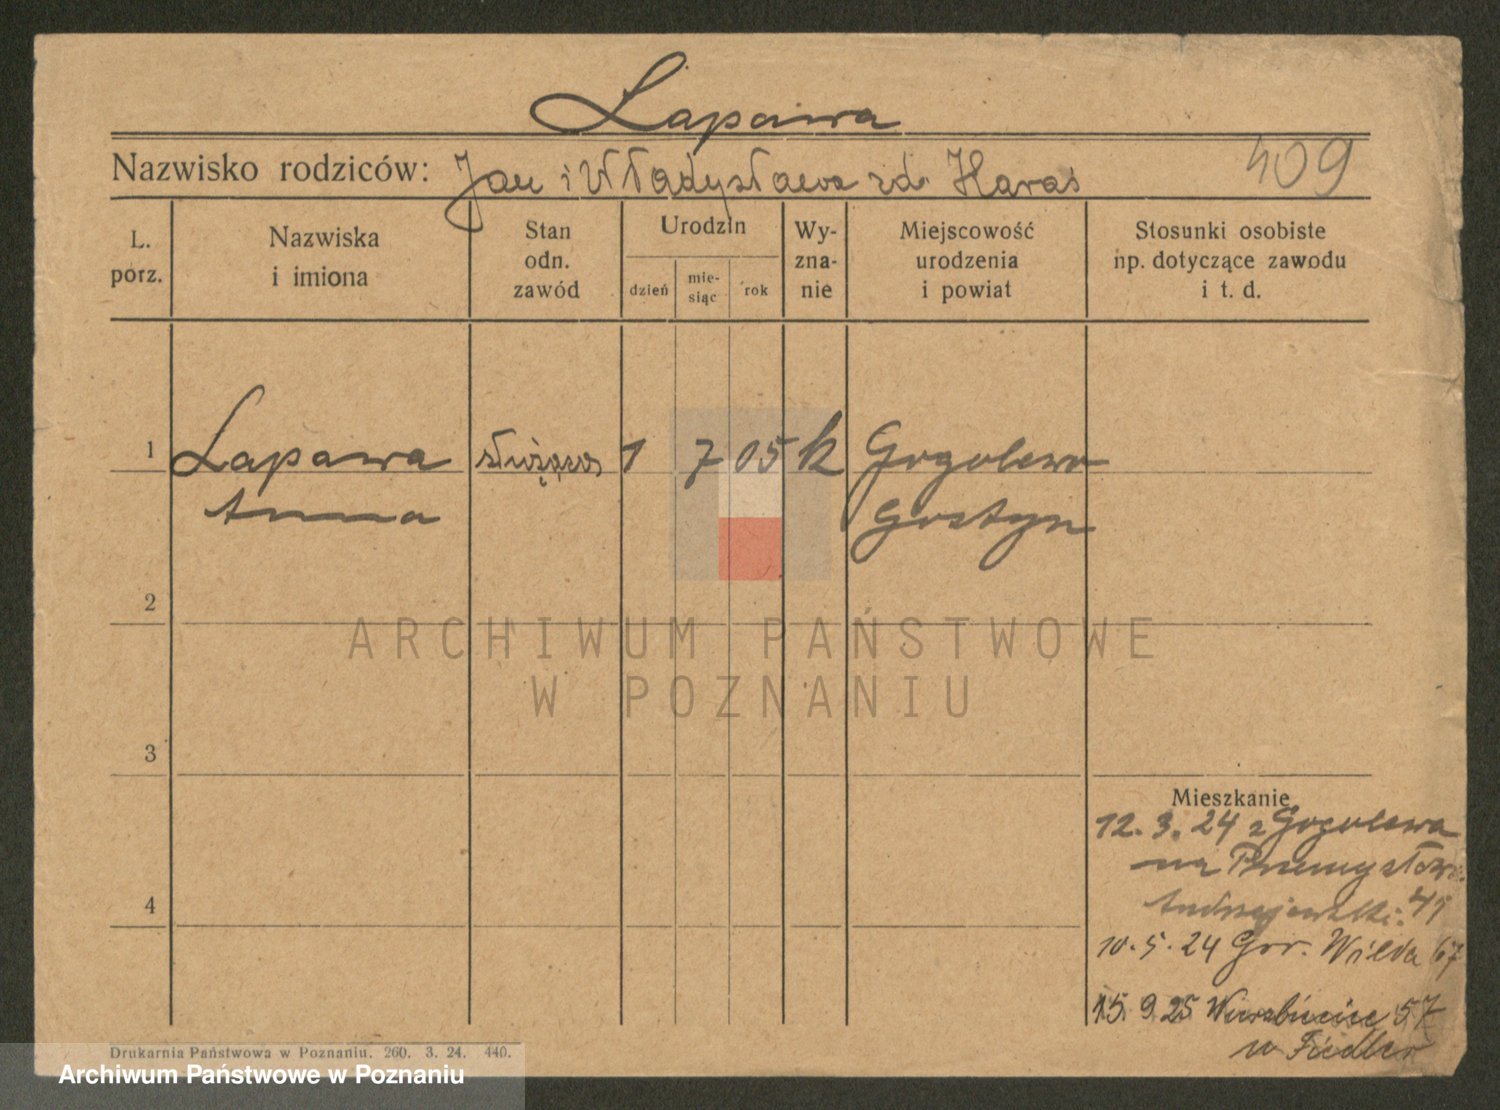 Lapawa
Nazwisko rodziców: Jan i Władysława zd. Haras
409
L. porz.
Nazwiska i imiona
Stan odn. zawód
Urodzin
dzień
mie-
siąc
rok
Wy-
zna-
nie
Miejscowość urodzenia i powiat
Stosunki osobiste
np. dotyczące zawodu
i t. d.
1 Lapawa służąca 1 7 05 k Gogolewo
Anna Gostyn
2
3
4
ARCHIWUM PAŃSTWOWE
W POZNANIU
Mieszkanie
12.3.24 z Gogolewa
na Przemysłow.
Andrzejewski 41
10.5.24 Gór. Wilda 67
15.9.25 Wierzbięcice 57
u Fiedler
Drukarnia Państwowa w Poznaniu. 260. 3. 24. 440.
Archiwum Państwowe w Poznaniu